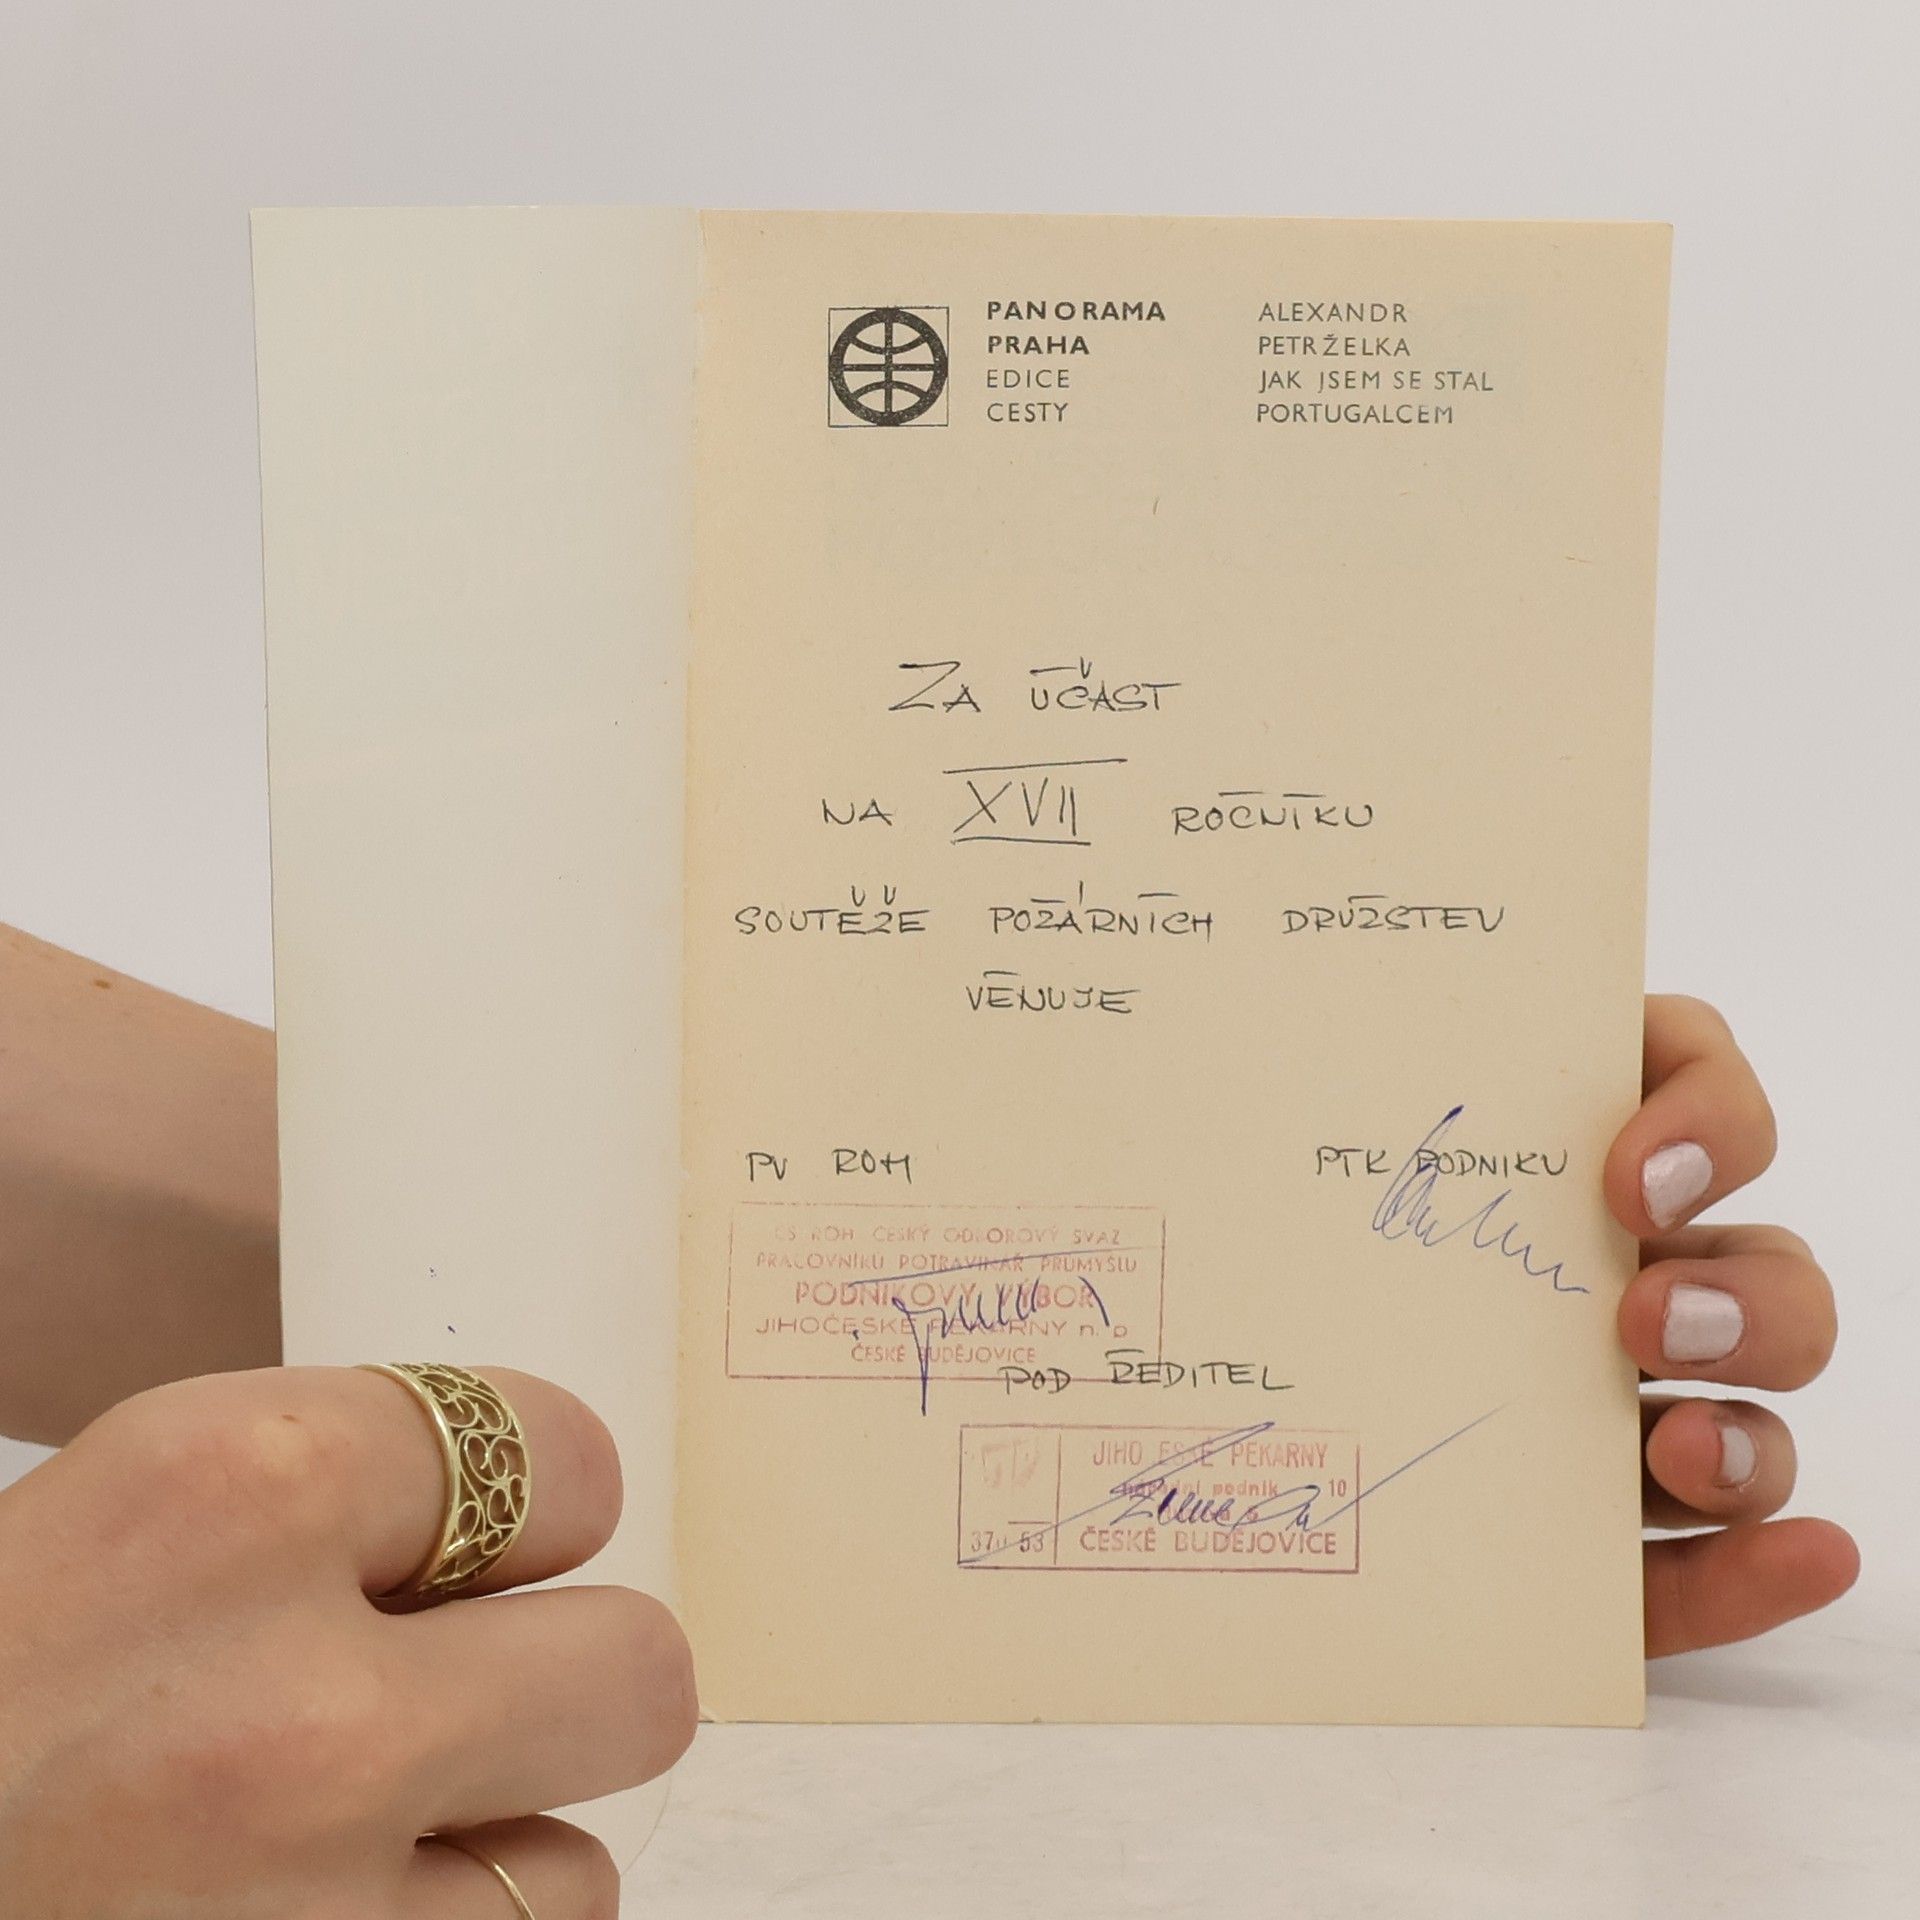 PANORAMA
PRAHA
EDICE
CESTY
ALEXANDR
PETRŽELKA
JAK JSEM SE STAL
PORTUGALCEM
ZA ÚČAST
NA XVII ROČNÍKU
SOUTĚŽE POŽÁRNÍCH DRUŽSTEV
VĚNUJE
PV ROH
PTK PODNIKU
ČS ROH ČESKÝ ODBOROVÝ SVAZ
PRACOVNÍKŮ POTRAVINÁŘ PRŮMYSLU
PODNIKOVÝ VÝBOR
JIHOČESKÉ PEKÁRNY n. p
ČESKÉ BUDĚJOVICE
POD ŘEDITEL
JIHO ESKÉ PEKÁRNY
národní podnik 10
53
ČESKÉ BUDĚJOVICE